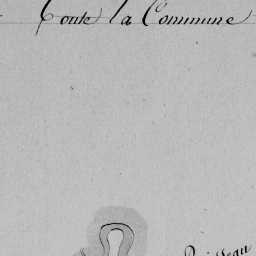 Toute la Commune
Ruisseau